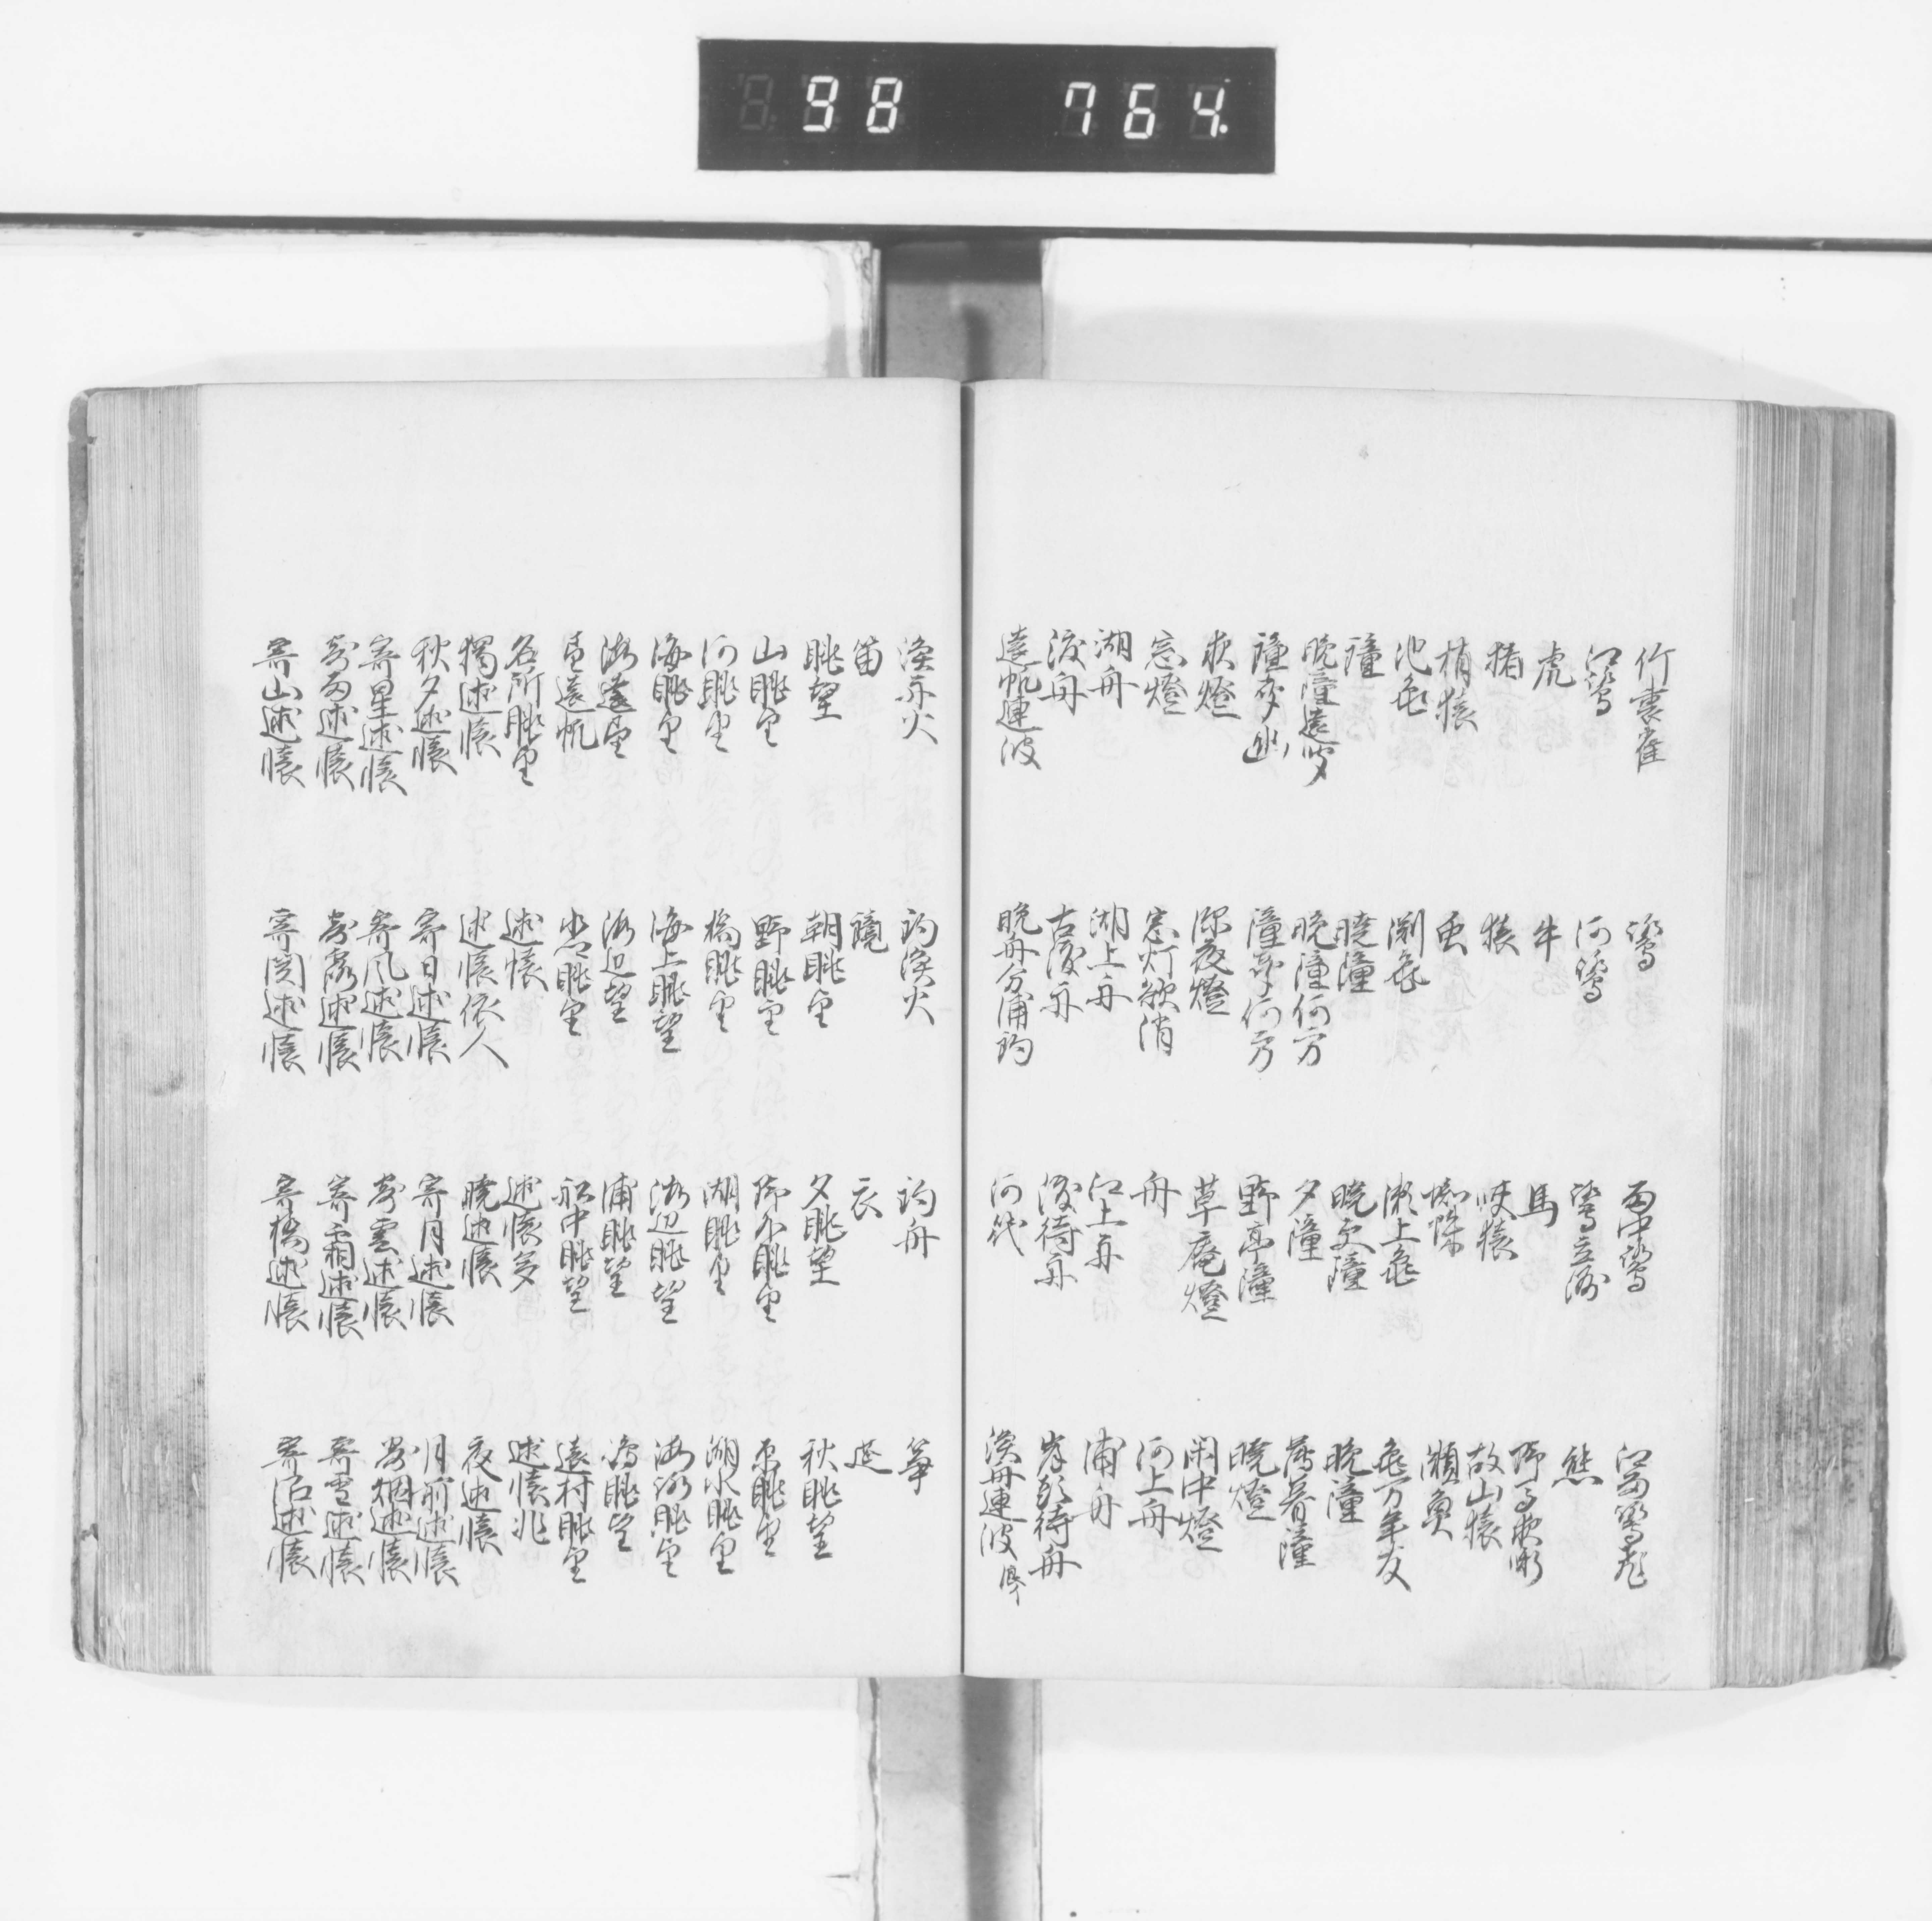 98 764
竹裏雀 鷺 雨中鷺 江雨鷺飛
江鷺 河鷺 鷺立洲 熊
虎 牛 馬
猪 猿 峡猿 故山猿
梢猿 虫 蜘蛛 瀬魚
池亀 渕亀 瀬上亀 亀万年友
鐘 暁鐘 暁更鐘 晩鐘
晩鐘遠 晩鐘何方 夕鐘 薄暮鐘
鐘声幽 鐘声何方 野亭鐘 暁燈
夜燈 深夜燈 草庵燈 閑中燈
窓燈 窓灯欲消 舟 河上舟
湖舟 湖上舟 江上舟 浦舟
渡舟 古渡舟 渡待舟 岸頭待舟
遠帆連波 晩舟分浦 釣 河筏 漁舟連波
漁舟火 釣漁火 釣舟 箏
笛 鏡 衣 筵
眺望 朝眺望 夕眺望 秋眺望
山眺望 野眺望 眺望 原眺望
河眺望 橋眺望 湖眺望 湖水眺望
海眺望 海上眺望 海辺眺望 海路眺望
海遠望 海辺望 浦眺望 眺望
望遠帆 眺望 船中眺望 遠村眺望
名所眺望 述懐 述懐多 述懐非
独述懐 述懐依人 暁述懐 夜述懐
秋夕述懐 寄日述懐 寄月述懐 月前述懐
寄星述懐 寄風述懐 寄雲述懐 寄烟述懐
寄雨述懐 寄露述懐 寄霜述懐 寄雪述懐
寄山述懐 寄関述懐 寄橋述懐 述懐